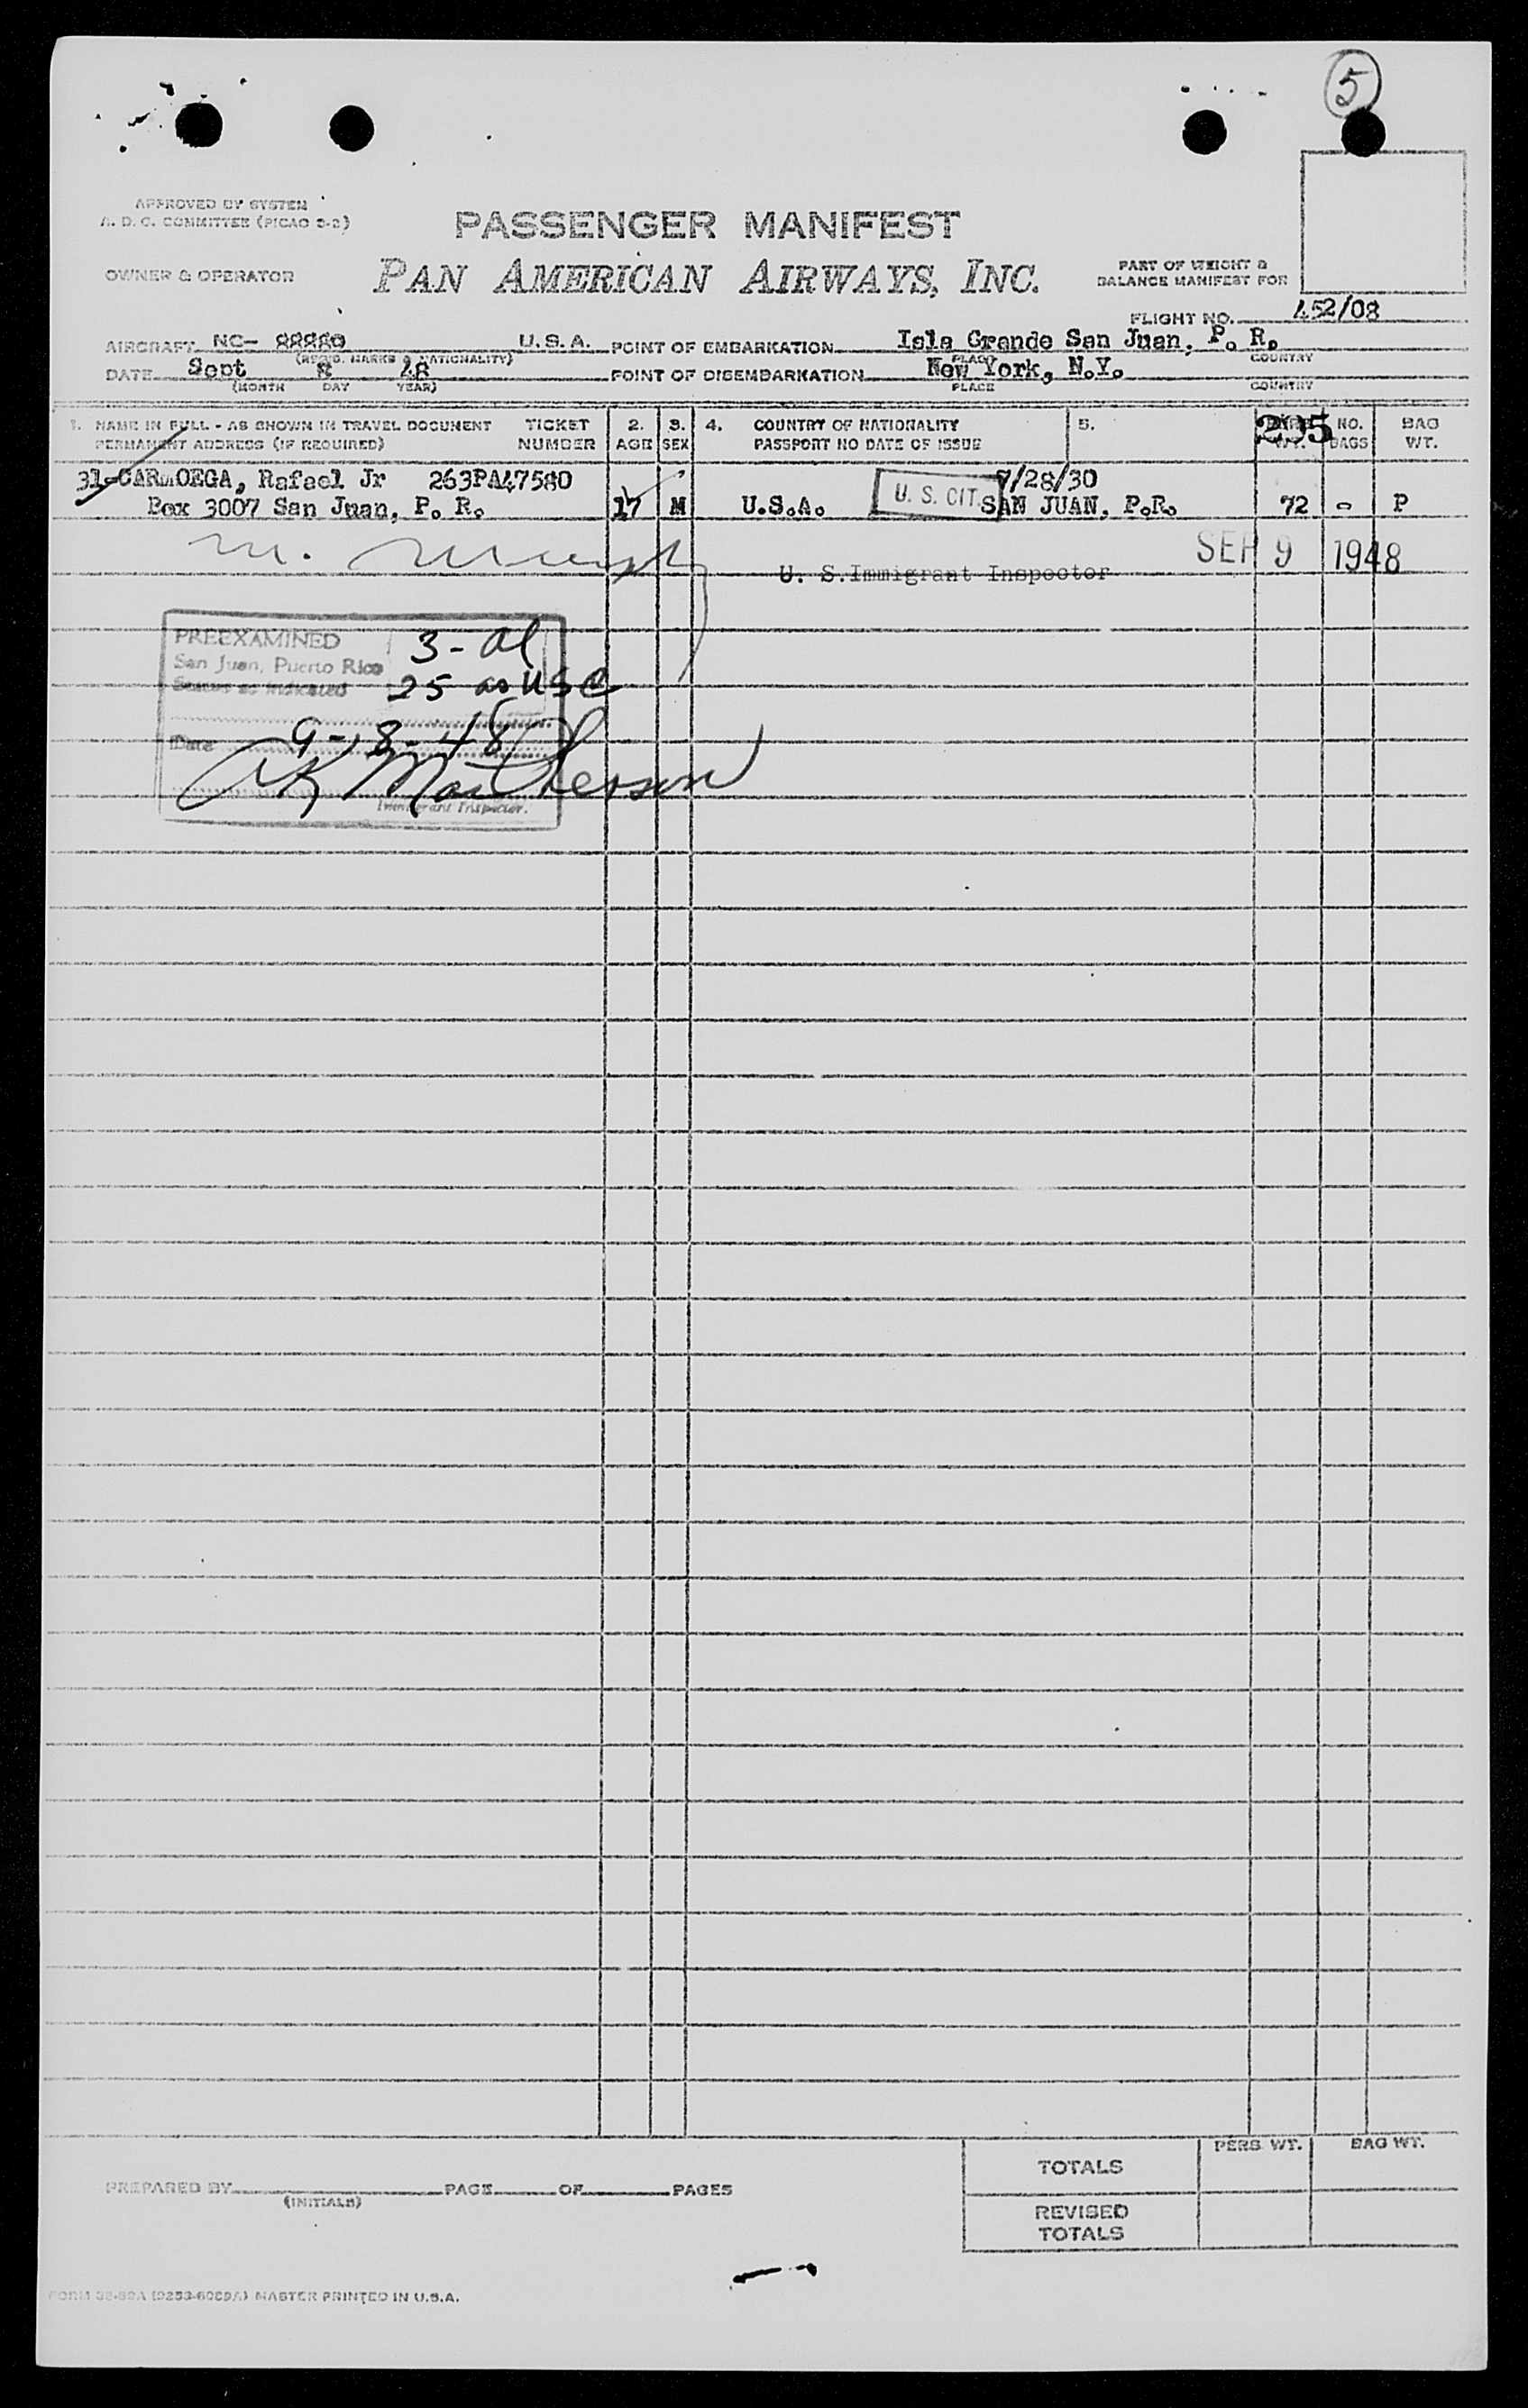 5
APPROVED BY SYSTEM
A. D. C. COMMITTEE (PICAO 2-2)
PASSENGER MANIFEST
OWNER & OPERATOR
PAN AMERICAN AIRWAYS, INC.
PART OF WEIGHT &
BALANCE MANIFEST FOR
FLIGHT NO. 452/08
AIRCRAFT NC- U.S.A. POINT OF EMBARKATION Isla Grande San Juan, P. R.
(REG'D. MARKS & NATIONALITY) PLACE COUNTRY
DATE Sept 8 48 POINT OF DISEMBARKATION New York, N.Y.
(MONTH DAY YEAR) PLACE COUNTRY
1. NAME IN FULL - AS SHOWN IN TRAVEL DOCUMENT TICKET 2. 3. 4. COUNTRY OF NATIONALITY 5. 295 NO. BAG
PERMANENT ADDRESS (IF REQUIRED) NUMBER AGE SEX PASSPORT NO DATE OF ISSUE WT. BAGS WT.
31-CARMOEGA, Rafael Jr 263PA47580 7/28/30
Box 3007 San Juan, P. R. 17 M U.S.A. U. S. CIT. SAN JUAN, P.R. 72 - P
M. Murphy SEP 9 1948
U. S. Immigrant Inspector
PREEXAMINED 3-al
San Juan, Puerto Rico
Status as indicated 25 as USC
Date 9-8-48
AK Matheson
Immigrant Inspector.
TOTALS PERS WT. BAG WT.
PREPARED BY PAGE OF PAGES
(INITIALS)
REVISED
TOTALS
MASTER PRINTED IN U.S.A.